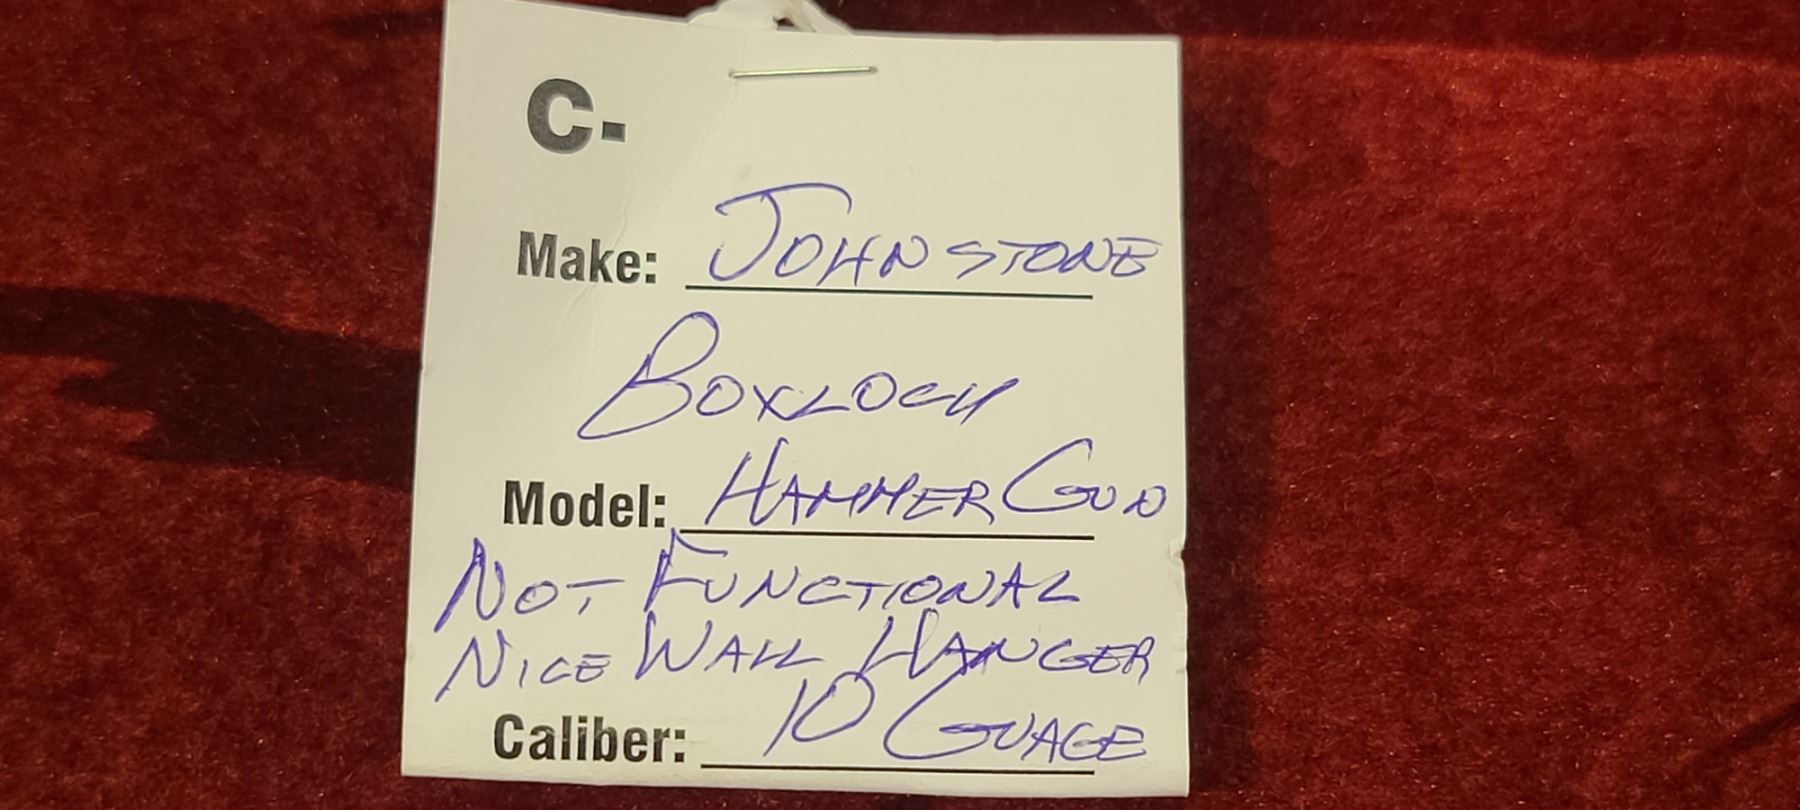 C-
Make: JOHNSTONE
BOXLOCK
Model: HAMMER GUN
NOT FUNCTIONAL
NICE WALL HANGER
Caliber: 10 GUAGE